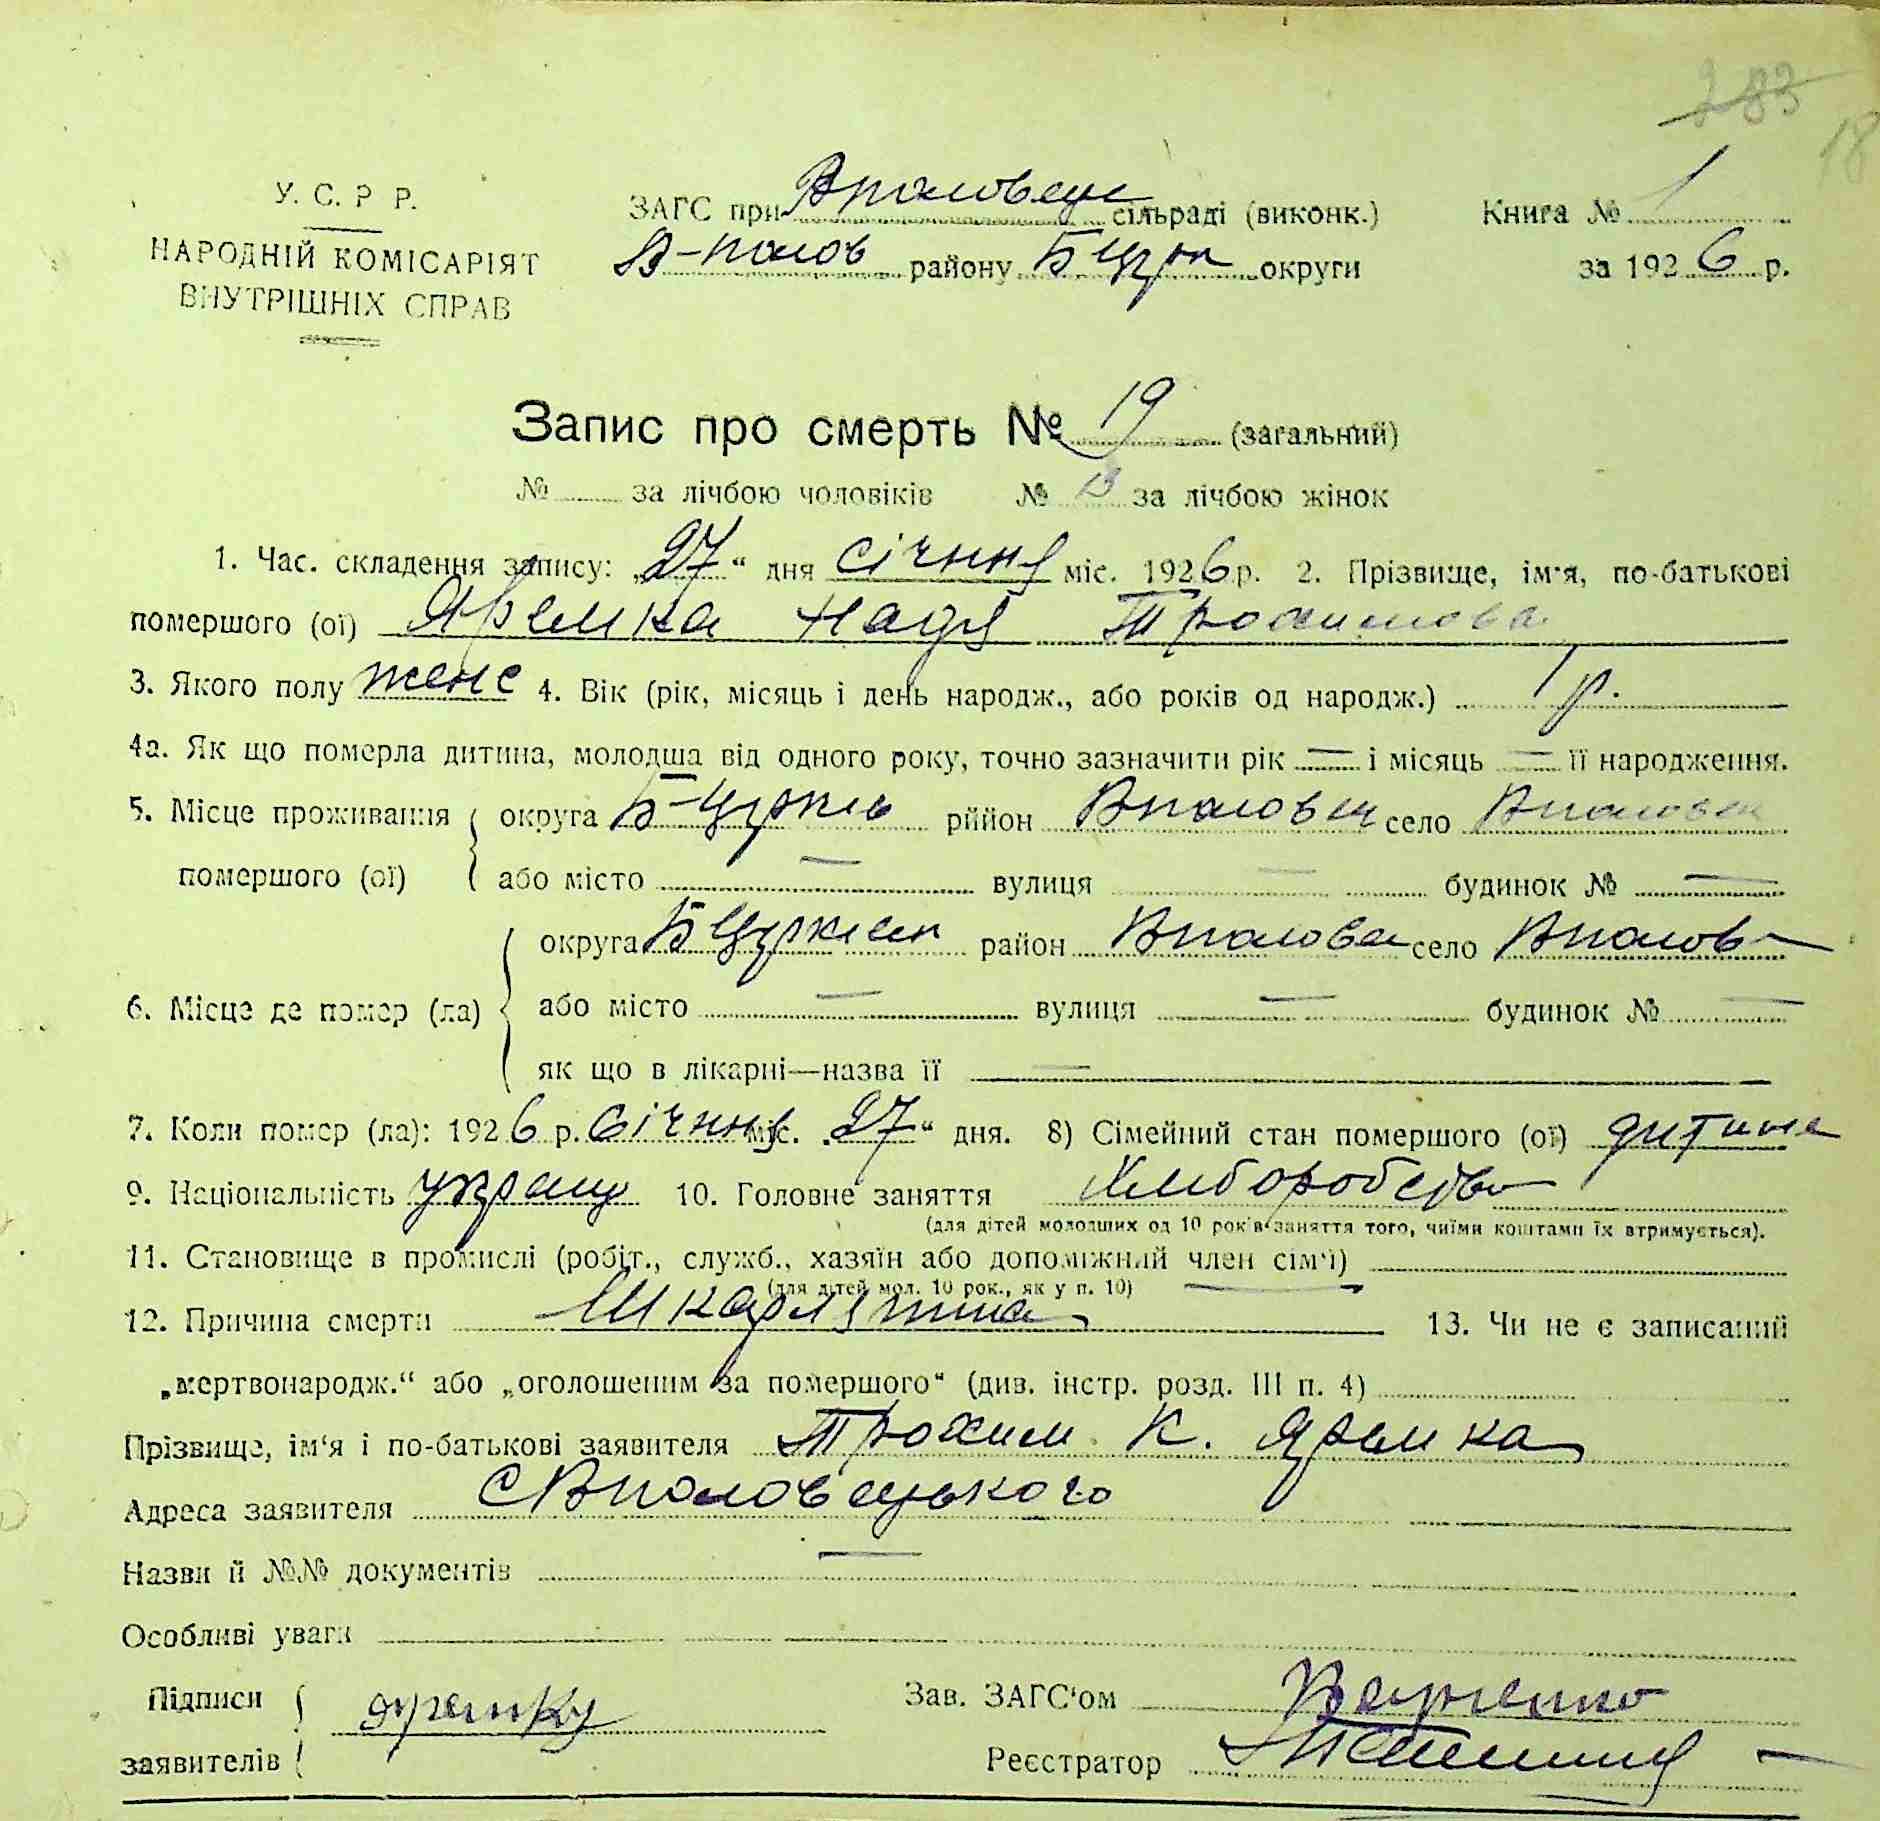 283
18
У. С. Р. Р.
НАРОДНІЙ КОМІСАРІЯТ
ВНУТРІШНІХ СПРАВ
ЗАГС при Вполовец сільраді (виконк.)
В-полов району Бцерк округи
Книга № 1
за 1926 р.
Запис про смерть № 19 (загальний)
№ за лічбою чоловіків № 13 за лічбою жінок
1. Час. складення запису: „27“ дня січння міс. 1926 р. 2. Прізвище, ім'я, по-батькові
помершого (ої) Яремка Надя Трохимова
3. Якого полу женс 4. Вік (рік, місяць і день народж., або років од народж.) 1 р.
4а. Як що померла дитина, молодша від одного року, точно зазначити рік — і місяць — її народження.
5. Місце проживання округа Б-Церкв рййон Вполовец село Вполовец
помершого (ої) або місто — вулиця — будинок № —
округа район Вполовец село Вполов
6. Місце де помер (ла) або місто — вулиця — будинок № —
як що в лікарні—назва її —
7. Коли помер (ла): 1926 р. Січння міс. „27“ дня. 8) Сімейний стан помершого (ої) дитина
9. Національність україц 10. Головне заняття Хлиборобство
(для дітей молодших од 10 років заняття того, чиїми коштами їх втримується).
11. Становище в промислі (робіт., служб., хазяїн або допоміжний член сім'ї)
(для дітей мол. 10 рок., як у п. 10) —
12. Причина смерти Шкарлятина 13. Чи не є записаний
„мертвонародж.“ або „оголошеним за помершого“ (див. інстр. розд. III п. 4)
Прізвище, ім'я і по-батькові заявителя Трохим К. Яремка
Адреса заявителя с Вполовецького
Назви й №№ документів —
Особливі уваги
Підписи Яремку Зав. ЗАГС'ом
заявителів Реєстратор